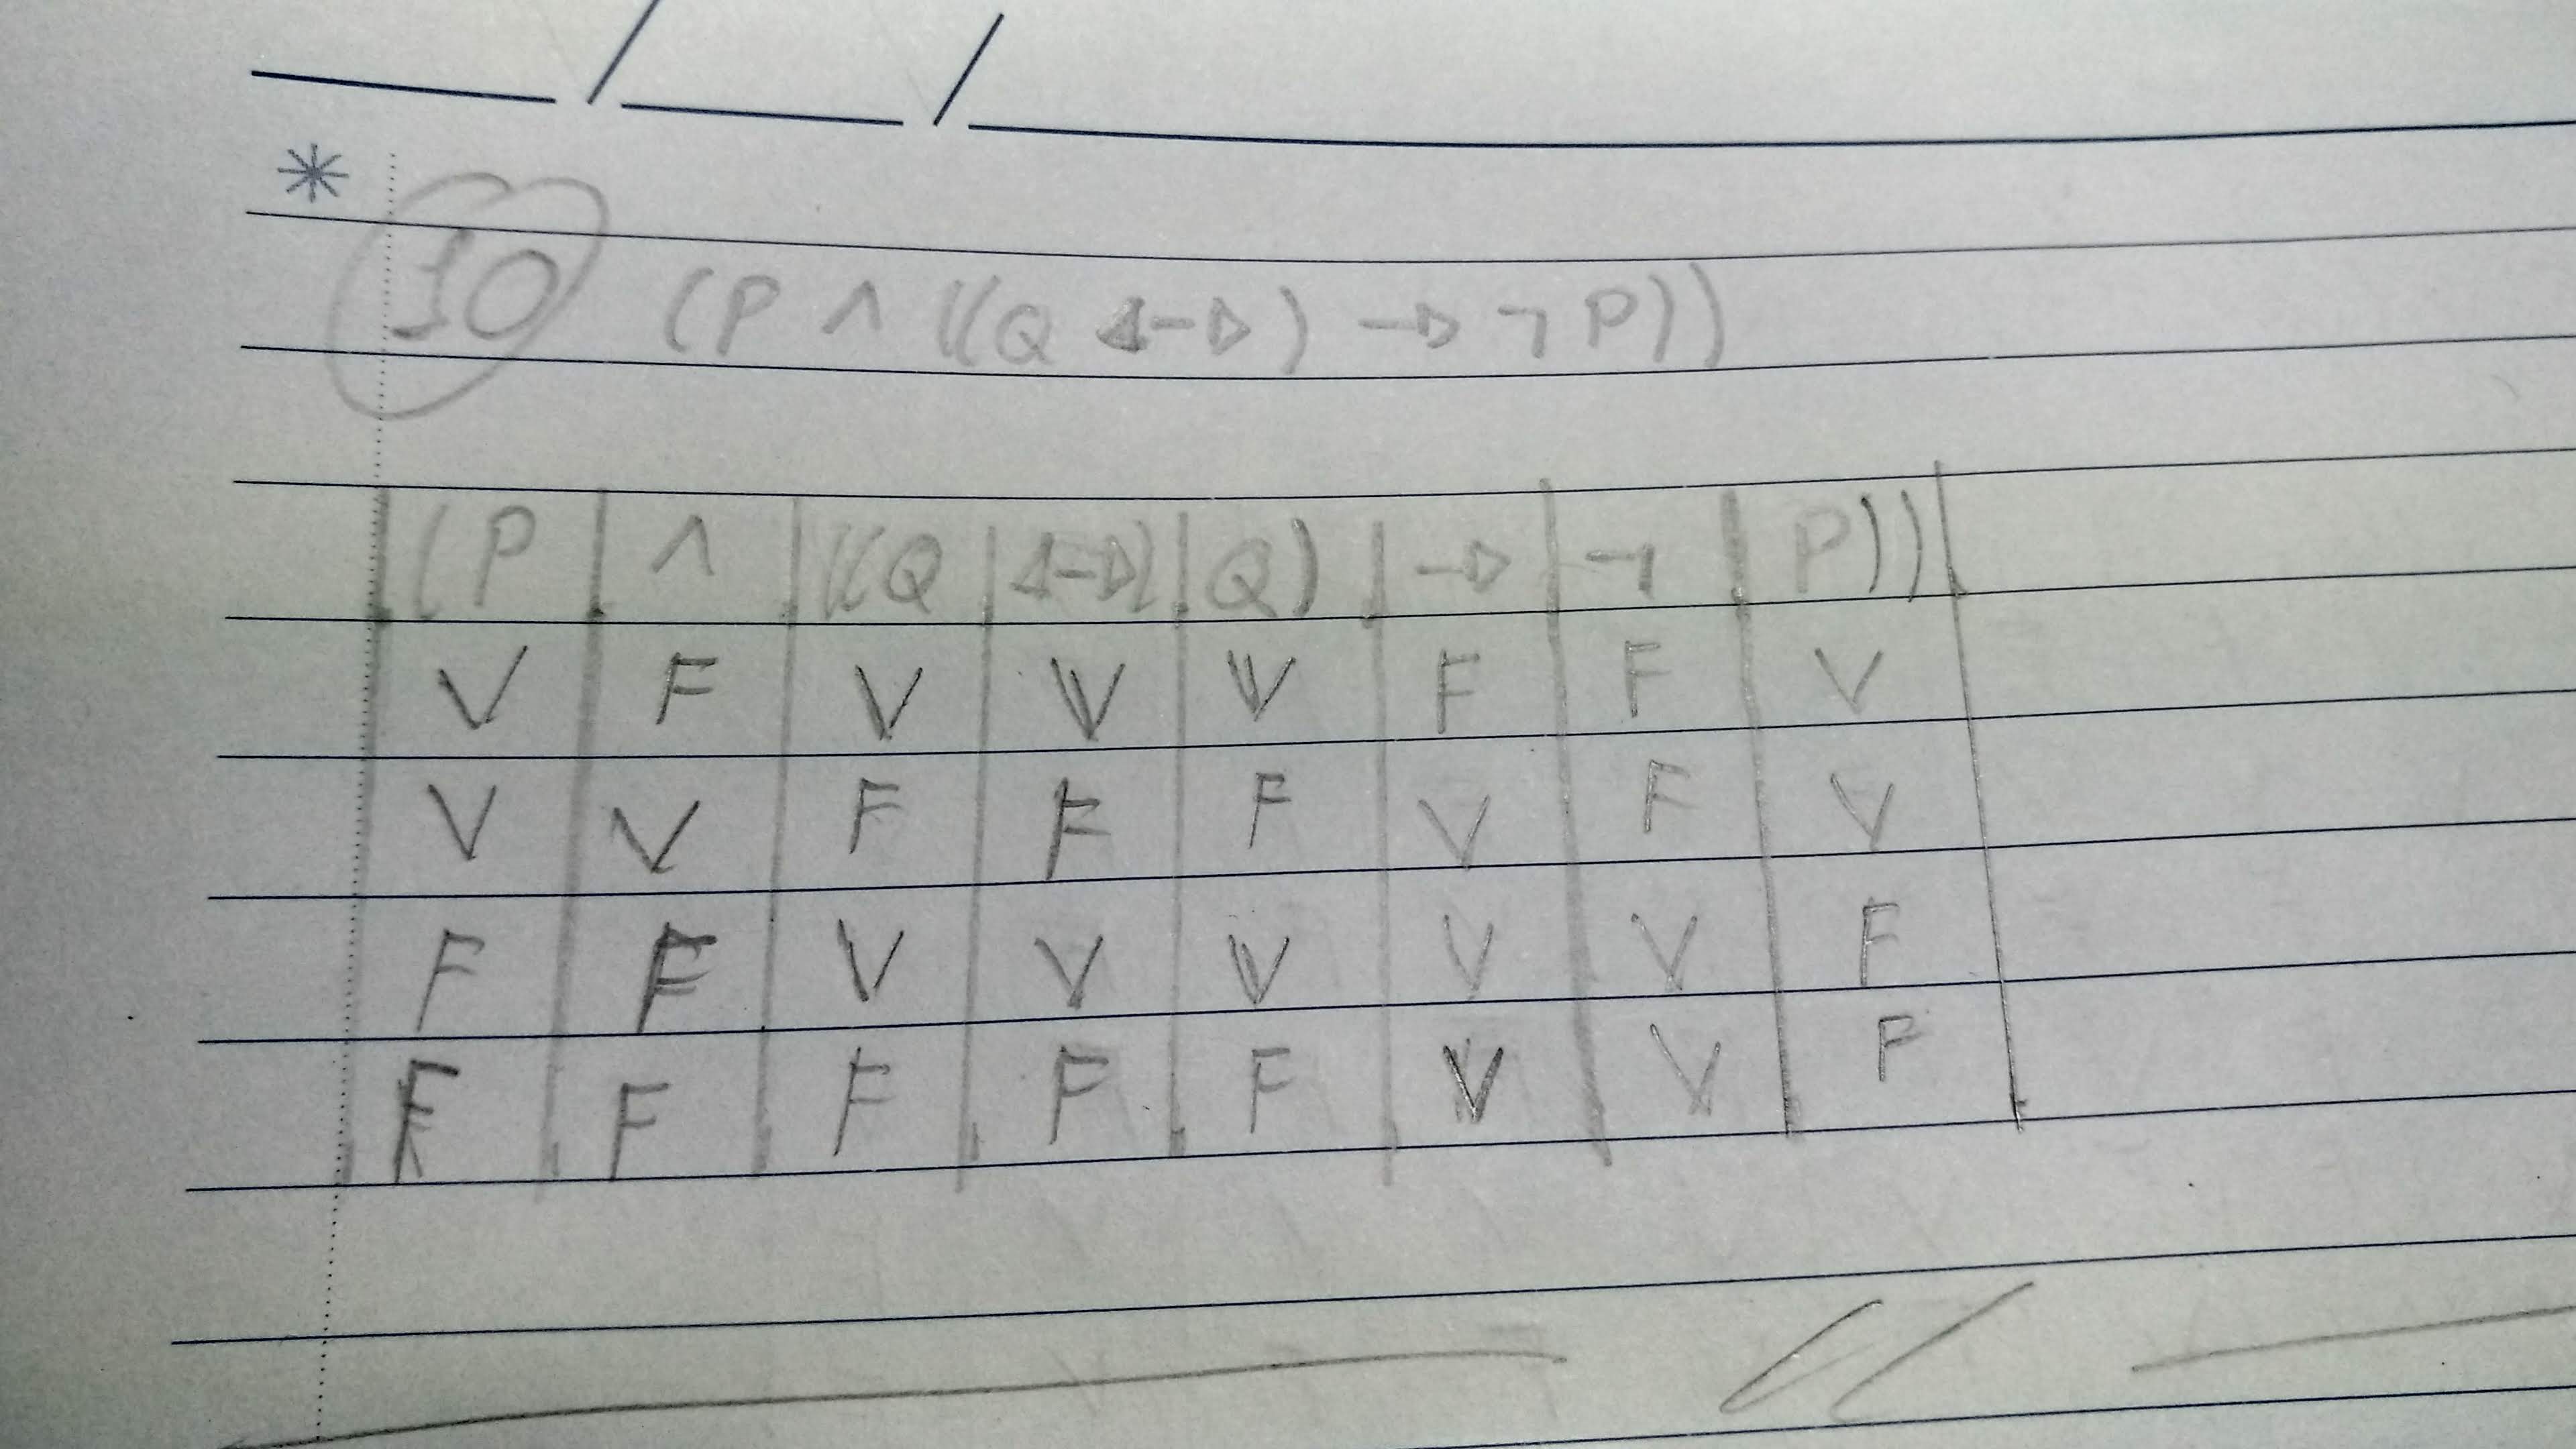 10 (P ∧ ((Q ↔ ) → ¬ P))
(P ∧ ((Q ↔) Q) → ¬ P))
V F V V V F F V
V V F F F V F V
F F V V V V V F
F F F F F V V F